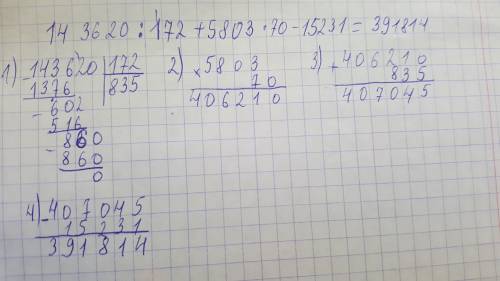 143620 : 172 + 5803 · 70 - 15231 = 391814
1) - 143620 | 172
1376 | 835
- 602
516
- 860
860
0
2) × 5803
70
406210
3) + 406210
835
407045
4) - 407045
15231
391814